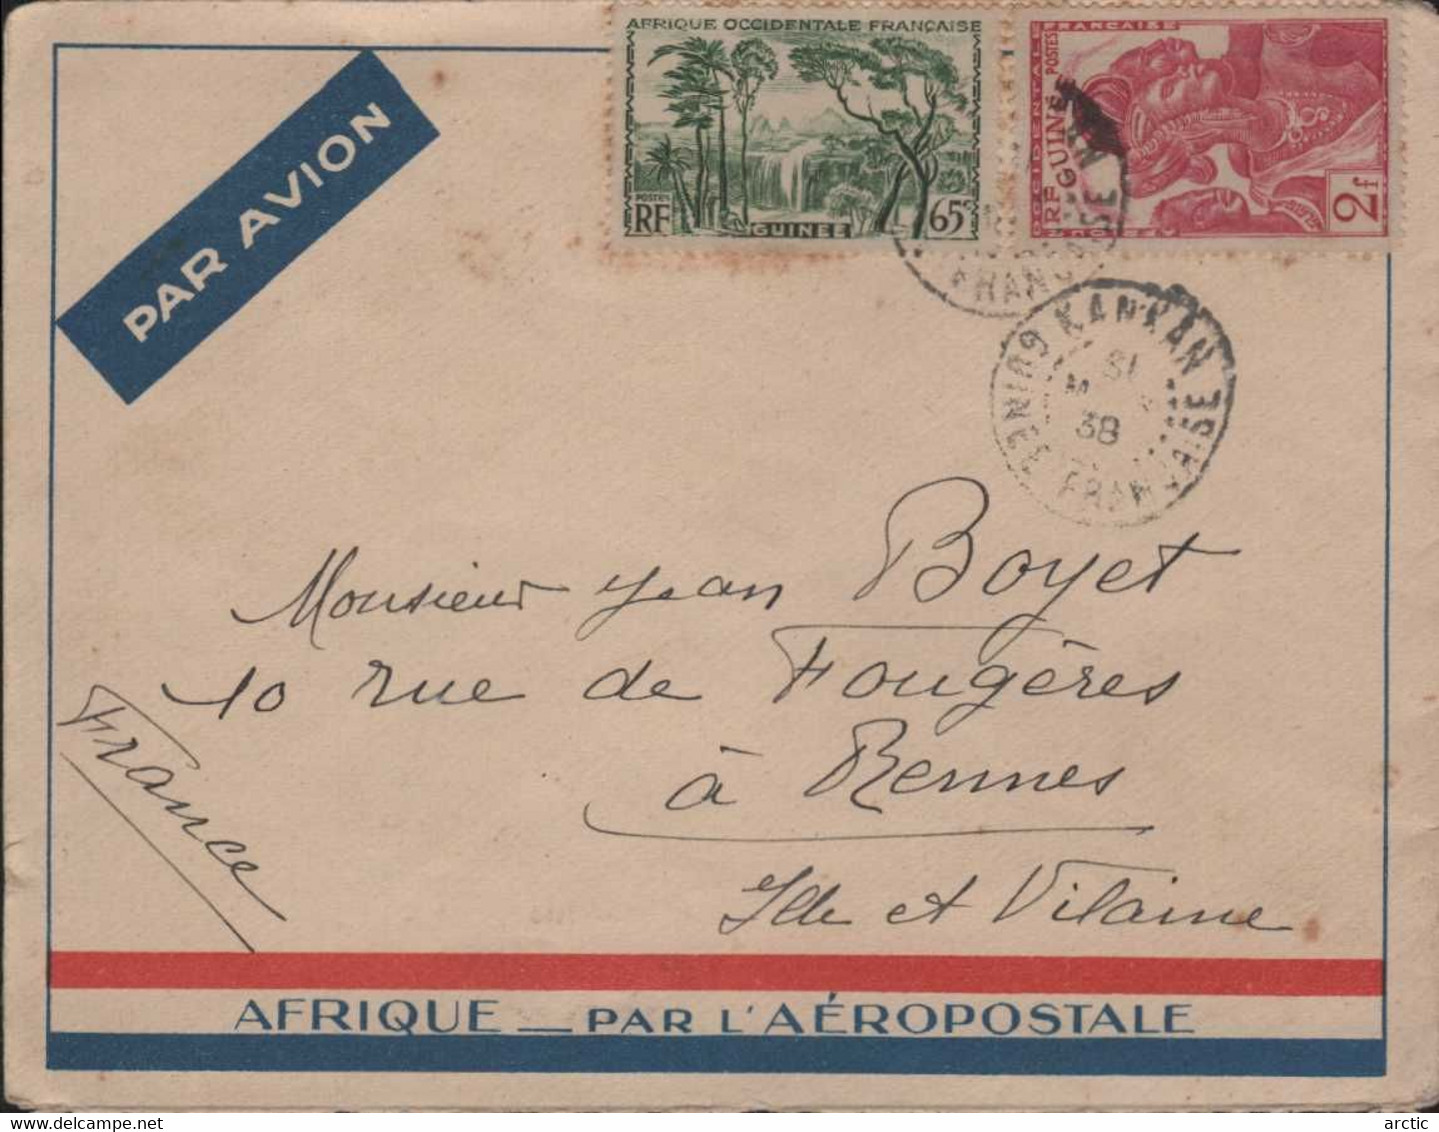 AFRIQUE OCCIDENTALE FRANÇAISE
POSTES
RF
GUINEE
65c
AFRIQUE OCCIDENTALE FRANÇAISE
POSTES
RF GUINÉE
2f
PAR AVION
FRANÇAISE
KANKAN
GUINÉE FRANÇAISE
38
Monsieur Jean Boyet
10 rue de Fougères
à Rennes
Ille et Vilaine
France
AFRIQUE — PAR L'AÉROPOSTALE
arctic